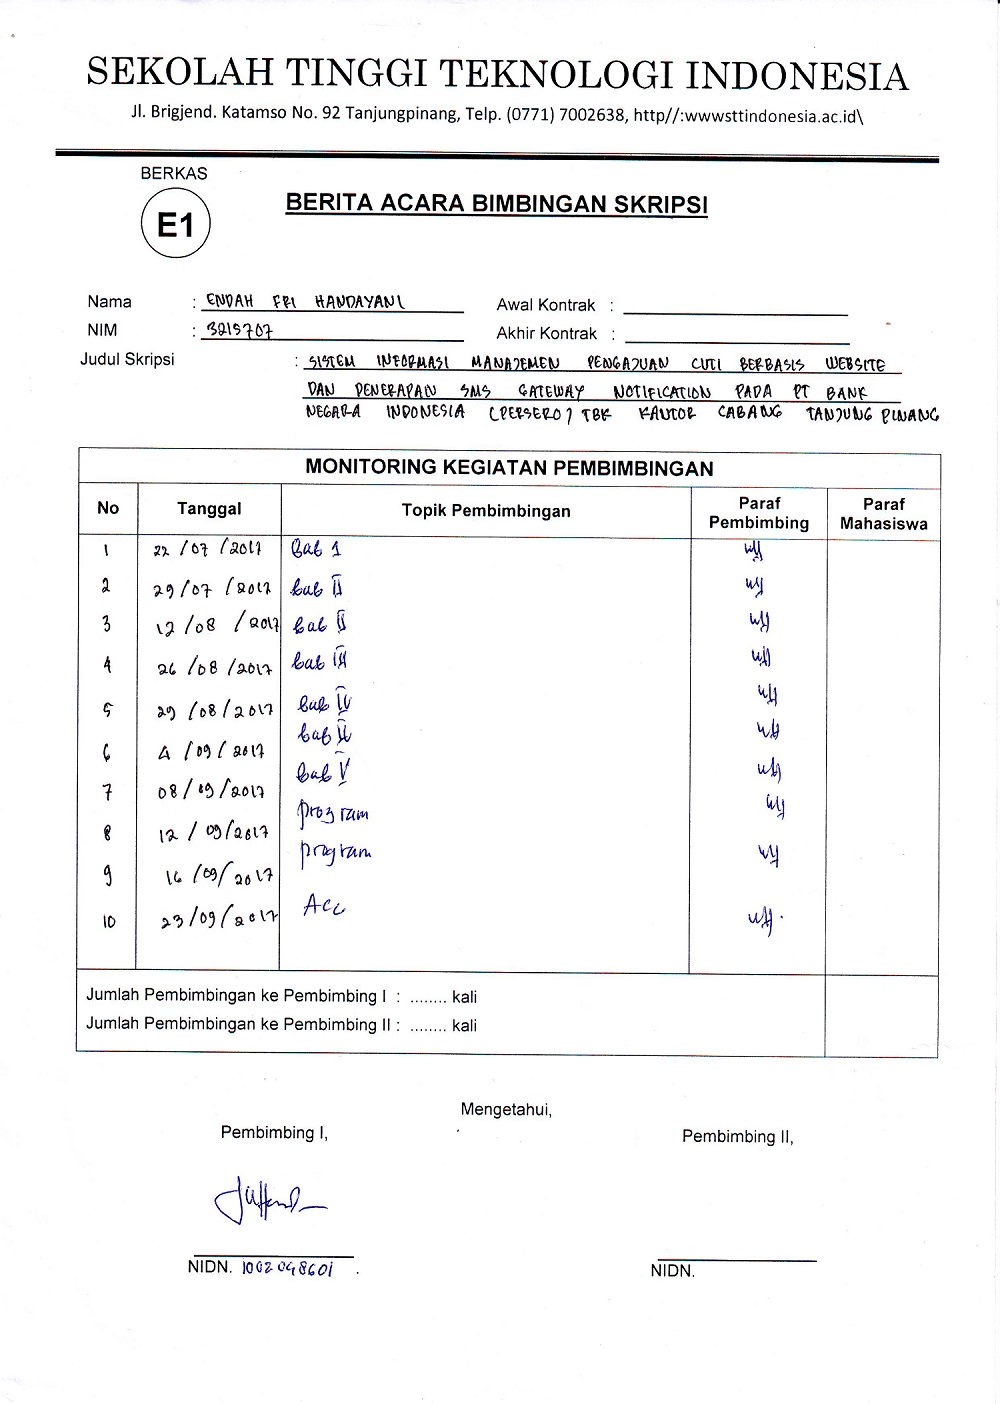 SEKOLAH TINGGI TEKNOLOGI INDONESIA
Jl. Brigjend. Katamso No. 92 Tanjungpinang, Telp. (0771) 7002638, http//:wwwsttindonesia.ac.id\
BERKAS
E1
BERITA ACARA BIMBINGAN SKRIPSI
Nama : ENDAH FRI HANDAYANI Awal Kontrak :
NIM : 3215707 Akhir Kontrak :
Judul Skripsi : SISTEM INFORMASI MANAJEMEN PENGAJUAN CUTI BERBASIS WEBSITE
DAN PENERAPAN SMS GATEWAY NOTIFICATION PADA PT BANK
NEGARA INDONESIA (PERSERO) TBK KANTOR CABANG TANJUNG PINANG
MONITORING KEGIATAN PEMBIMBINGAN
No Tanggal Topik Pembimbingan Paraf Pembimbing Paraf Mahasiswa
1 22/07/2017 Bab 1
2 29/07/2017 bab II
3 12/08/2017 bab II
4 26/08/2017 bab III
5 29/08/2017 bab IV
6 4/09/2017 bab
7 08/09/2017 bab V
8 12/09/2017 program
9 16/09/2017 program
10 23/09/2017 Acc
Jumlah Pembimbingan ke Pembimbing I : ........ kali
Jumlah Pembimbingan ke Pembimbing II : ........ kali
Mengetahui,
Pembimbing I, Pembimbing II,
NIDN. 1002048601 . NIDN.